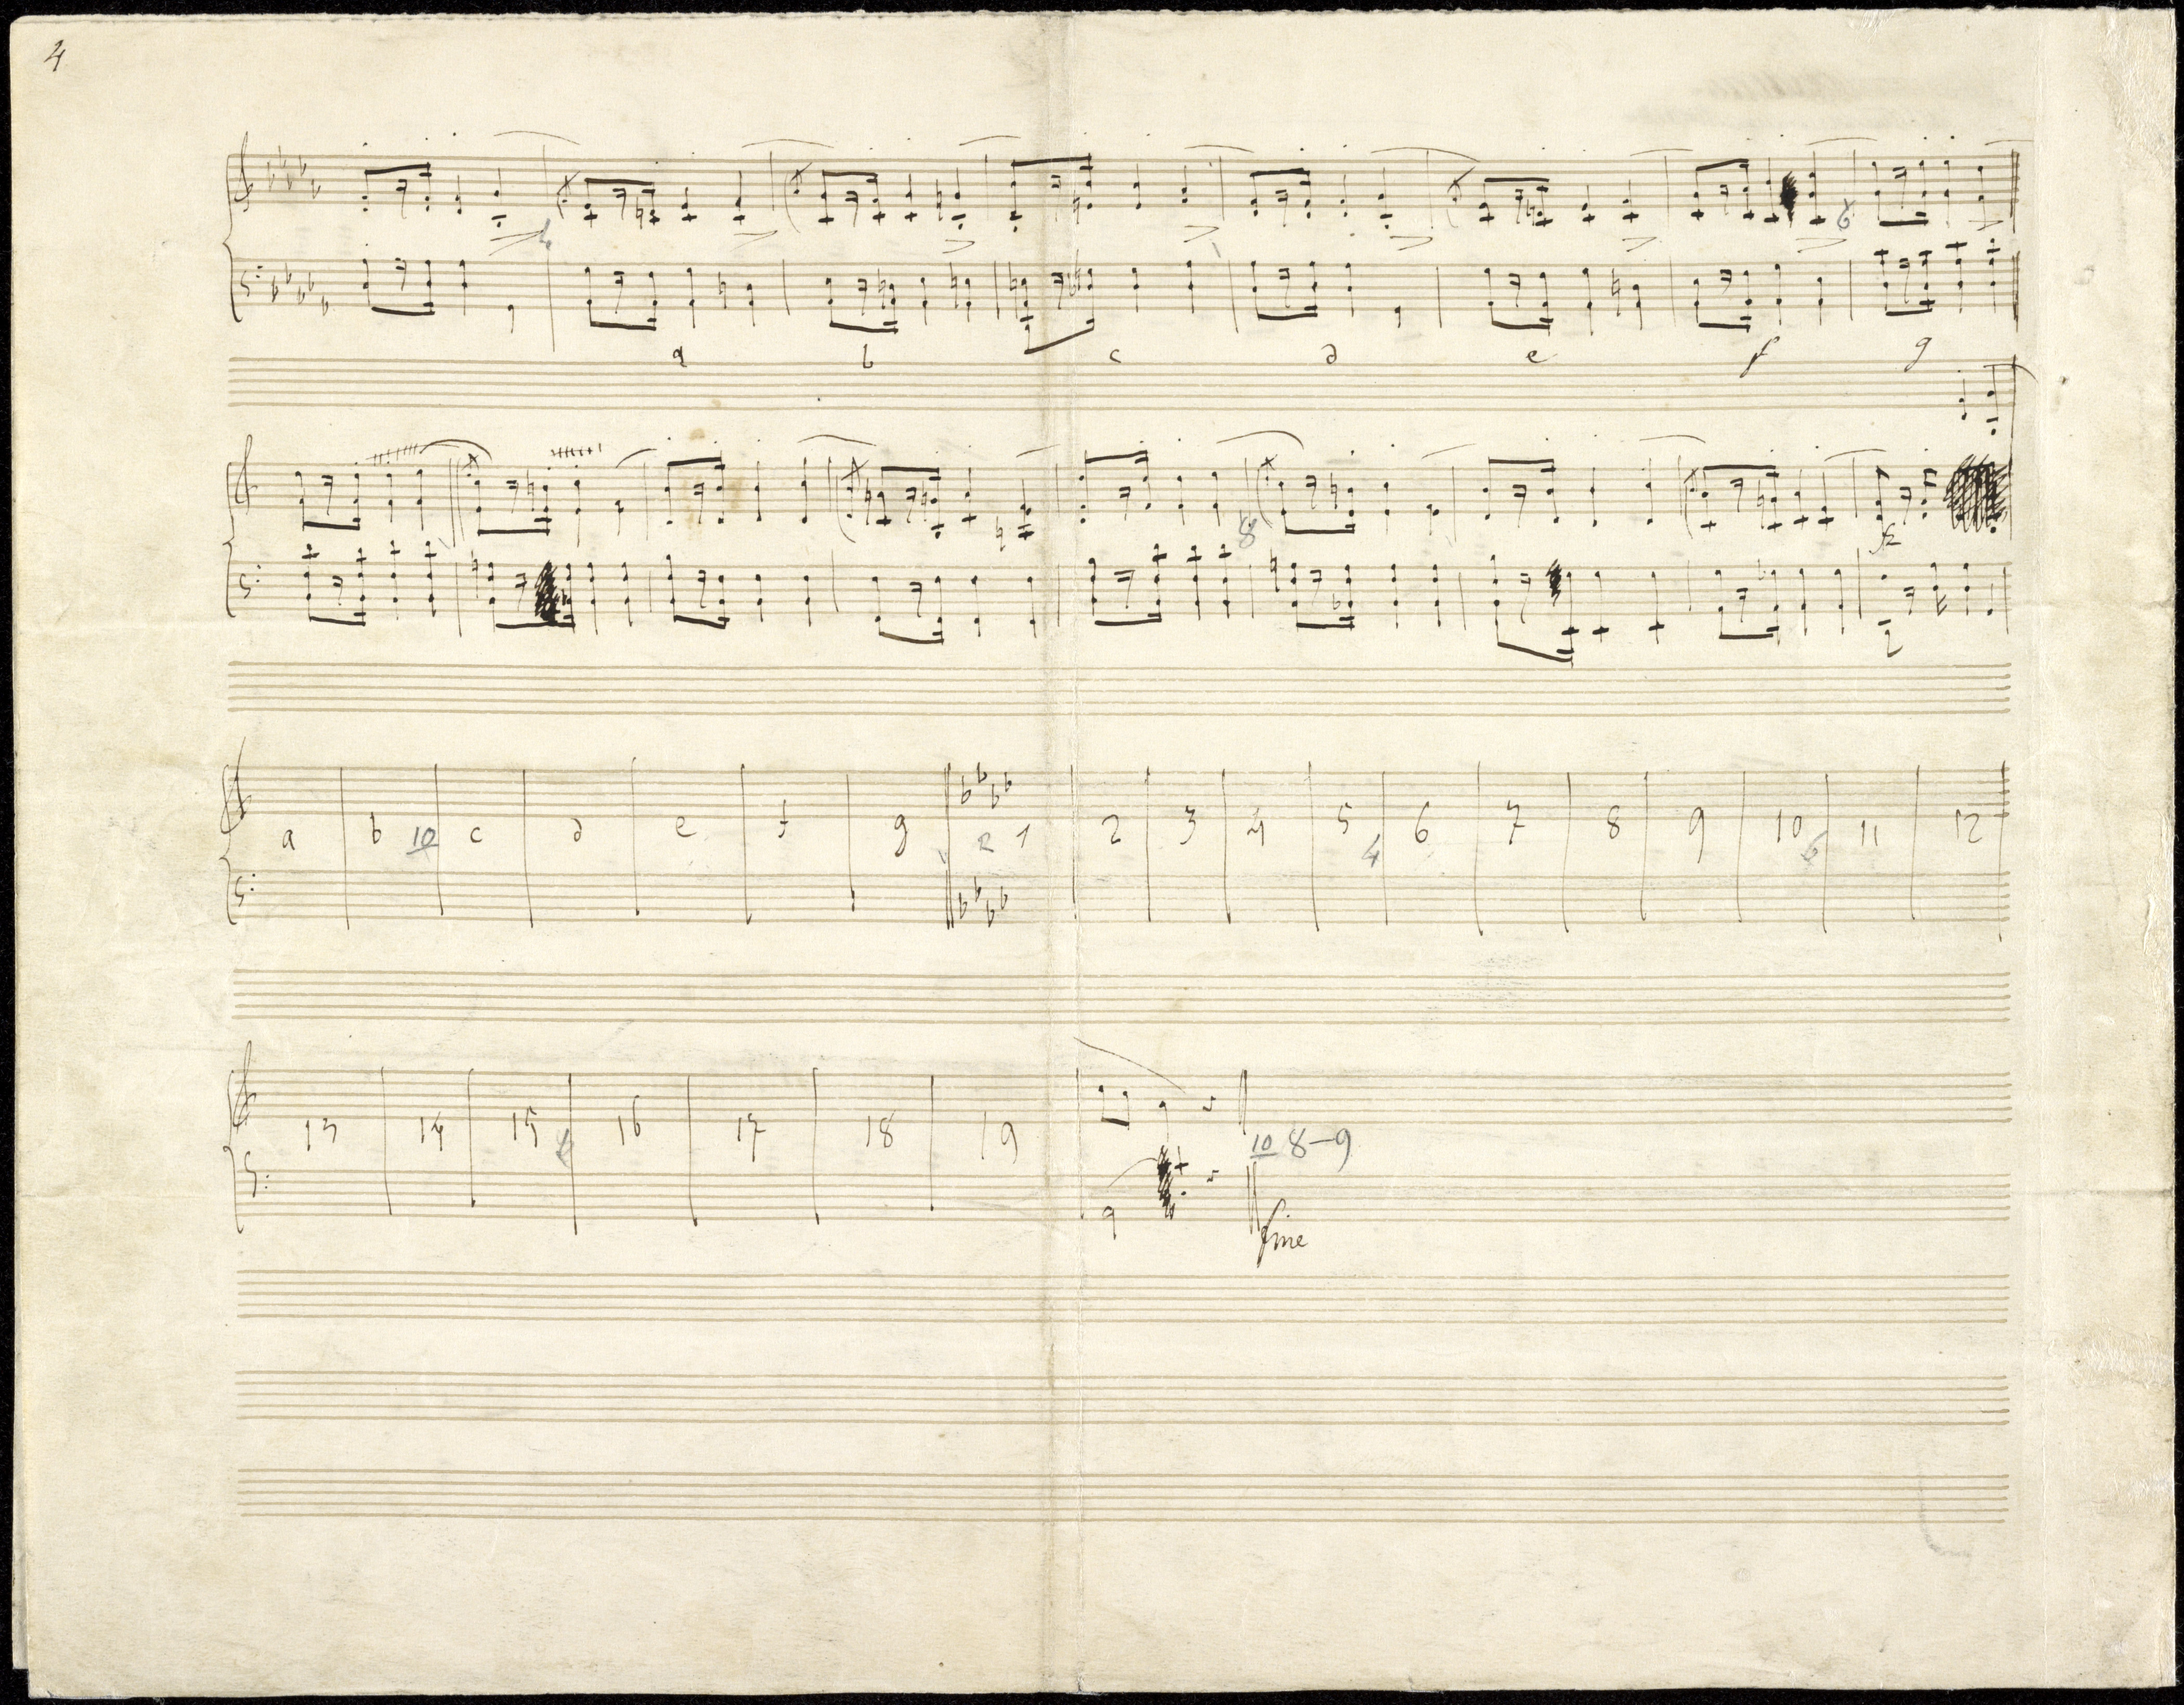 4
4 6
a b c d e f g
8
fz
a b 10 c d e f g 2 1 2 3 4 5 4 6 7 8 9 10 6 11 12
13 14 15 8 16 17 18 19
10 8-9
fine